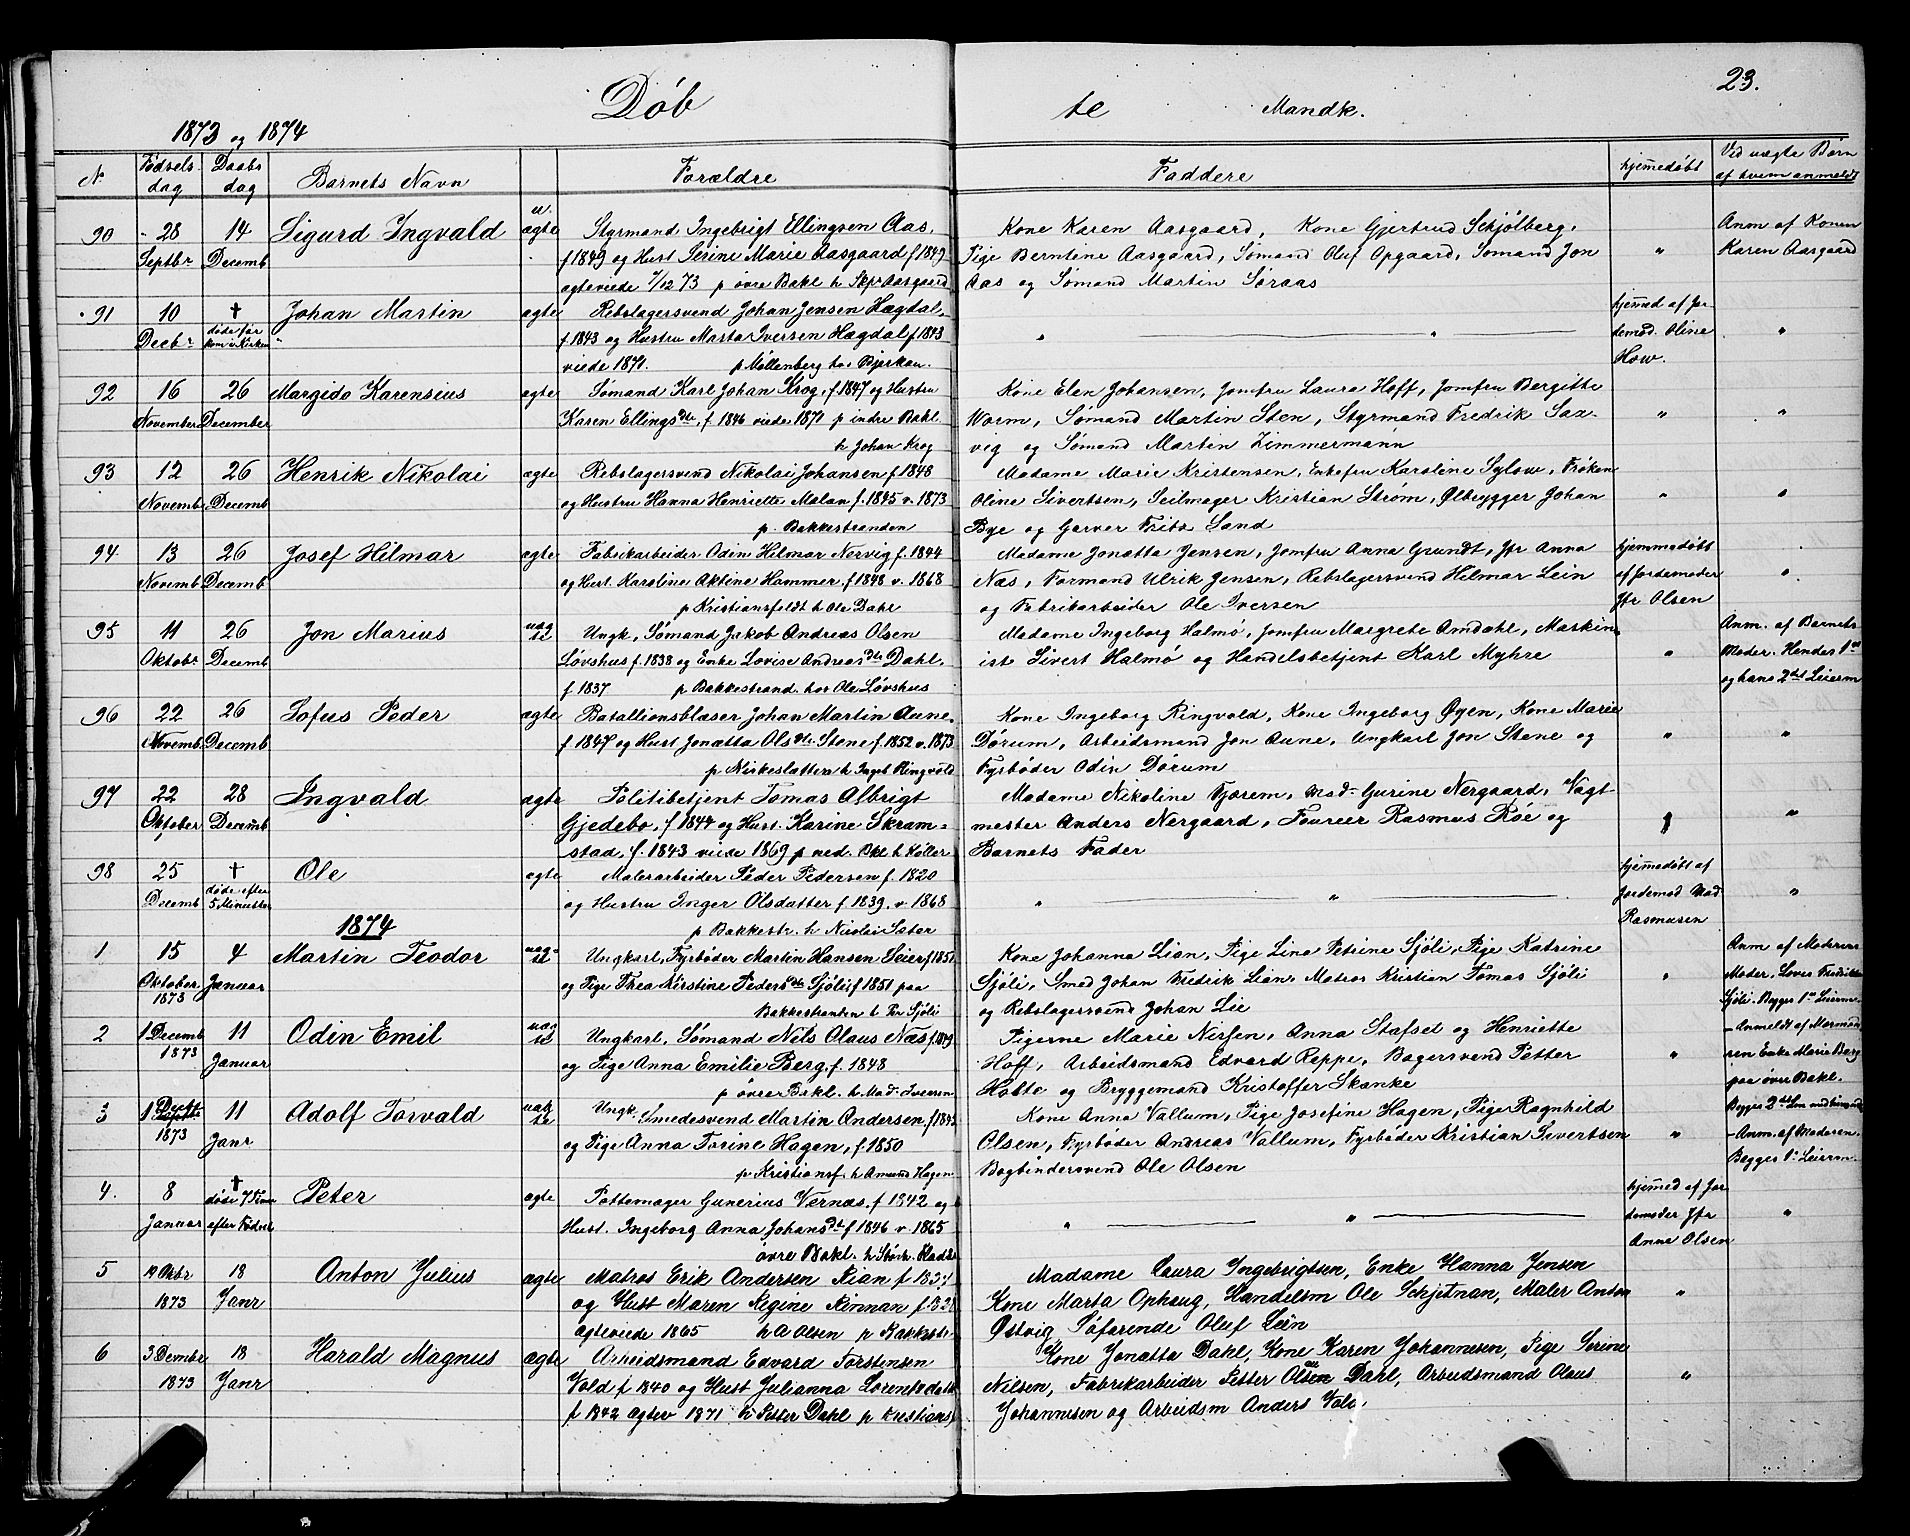 Døb te Mandk. 23.
1873 og 1874
N. Fødsels dag Daabs dag Barnets Navn Forældre Faddere hjemmedøbt Ved uægte Børn af hvem anmeldt
90 28 Septbr 14 Decemb Sigurd Ingvald u. ægte
Styrmand Ingebrigt Ellingsen Aas,
f 1849 og Hust Serine Marie Aasgaard f 1849
agteviede 7/12 73 p øvre Bakl h Skpr Aasgaard
Kone Karen Aasgaard, Kone Gjertrud Schjølberg,
Pige Berntine Aasgaard, Sømand Oluf Opgaard, Sømand Jon
Aas og Sømand Martin Søraas
"
Anm af Konen
Karen Aasgaard
91 10 Decbr † døde før kom i Kirken Johan Martin ægte
Rebslagersvend Johan Jensen Hagdal,
f 1843 og Hustru Marta Iversen Hagdal f 1843
viede 1871. p Møllenberg hos Bjerkan.
" "
hjemmed af Jor
demod. Oline
How.
"
92 16 November 26 December Margido Karensius ægte
Sømand Karl Johan Krog, f 1847 og Hustru
Karen Ellings dtr, f 1846 viede 1871 p indre Bakl.
h Johan Krog
Kone Elen Johansen, Jomfru Laura Hoff, Jomfru Bergitte
Worm, Sømand Martin Sten, Styrmand Fredrik Sax-
vig og Sømand Martin Zimmermann
" "
93 12 Novemb 26 Decemb Henrik Nikolai ægte
Rebslagersvend Nikolai Johansen f 1848
og Hustru Hanna Henriette Malan f. 1845 v. 1873
p. Bakkestranden
Madame Marie Kristensen, Enkefru Karoline Sylow, Frøken
Oline Sivertsen, Seilmager Kristian Strøm, Ølbrygger Johan
Bye og Garver Frits Sand
" "
94 13 Novemb 26 Decemb Josef Hilmar ægte
Fabrikarbeider Odin Hilmar Nervig f. 1844
og Hust. Karoline Aktine Hammer, f 1848 v. 1868
p Kristiansfeldt h Ole Dahr
Madame Jonatta Jensen, Jomfru Anna Grundt, Jfr Anna
Næs, Formand Ulrik Jensen, Rebslagersvend Hilmar Lein
og Fabrikarbeider Ole Iversen
hjemmedøbt
af Jordemoder
Jfr Olsen
"
95 11 Oktobr 26 Decemb Jon Marius uæg te
Ungk, Sømand Jakob Andreas Olsen
Løvshus f. 1838 og Enke Lovise Andreas dtr Dahl,
f 1837 p Bakkestrand hos Ole Løvshus
Madame Ingeborg Halmø, Jomfru Margrete Amdahl, Maskin
ist Sivert Halmø og Handelsbetjent Karl Myhre
"
Anm. af Barnets
Moder. Hendes 1ste
og hans 2det Leierm
96 22 Novemb 26 December Sofus Peder ægte
Batallionsblæser Johan Martin Aune,
f 1847 og Hust Jonatta Ols dtr Stene f. 1852 v. 1873
p Kirkesletten h Ingeb Ringvold
Kone Ingeborg Ringvold, Kone Ingeborg Øyen, Kone Marie
Dørum, Arbeidsmand Jon Aune, Ungkarl Jon Stene og
Fyrbøder Odin Dørum
" "
97 22 Oktober 28 Decemb Ingvald ægte
Politibetjent Tomas Albrigt
Gjedebo, f 1844 og Hust. Karine Skram-
stad, f. 1843 viede 1869 p ned. Bkl h Køller
Madame Nikoline Fjærem, Mad- Gurine Nergaard, Vagt
mester Anders Nergaard, Fourer Rasmus Røe og
Barnets Fader
" "
98 25 Decemb † døde efter 5 Minutter Ole ægte
Malerarbeider Peder Pedersen f. 1820
og Hustru Inger Olsdatter f 1839. v 1868
p Bakkestr. h Nicolai Sæter
" "
hjemmedøbt af
Jordemod Mad
Rasmusen
"
1874
1 15 Oktober 1873 4 Januar Martin Teodor uæg- te
Ungkarl, Fyrbøder Martin Hansen Seier f 1851
og Pige Thea Kirstine Peders dtr Sjøli f 1851 paa
Bakkestranden h Per Sjøli
Kone Johanna Lian, Pige Lina Petrine Sjøli, Pige Katrine
Sjøli, Smed Johan Fredrik Lian, Matros Kristian Tomas Sjøli
og Rebslagersvend Johan Lie
"
Anm af Moderens
Moder,
Sjøli. Begges 1ste Leierm.
2 1 Decemb 1873 11 Januar Odin Emil uæg te
Ungkarl, Sømand Nels Claus Næs f. 1849
og Pige Anna Emilie Berg, f. 1848
p øvre Bakl. h Mad. Iversen
Pigerne Marie Nissen, Anna Stafset og Henriette
Hoff, Arbeidsmand Edvard Reppe, Bagersvend Petter
Holte og Bryggemand Kristoffer Skanke
"
- Anmeldt af Mormod
ren Enke Marie Berg
paa øvre Bakl.
Begges 2det
3 1 1873 11 Janr Adolf Torvald uæg te
Ungk. Smedesvend Martin Andersen, f 1842
og Pige Anna Torine Hagen, f 1850
p Kristiansf. h Amund Hagen
Kone Anna Vallum, Pige Josefine Hagen, Pige Ragnhild
Olsen, Fyrbøder Andreas Vallum, Fyrbøder Kristian Sivertsen
Bogbindersvend Ole Olsen
"
- Anm. af Moderen.
Begges 1ste Leierm.
4. 8 Januar † døde 7 Timer efter Fødsel Peter ægte
Pottemager Gunerius Vernæs f 1842 og
Hust. Ingeborg Anna Johans dt f 1846 v. 1865
øvre Bakl. h
" "
hjemmed af Jor
demoder Jfr
Anne Olsen
"
5 19 Oktbr 1873 18 Janr Anton Julius ægte
Matros Erik Andersen Rian f 1837
og Hust Maren Regine Rinnan f. 38
ægteviede 1865 h A Olsen p Bakkestr.
Madame Laura Ingebrigtsen, Enke Hanna Jensen
Kone Marta Ophaug, Handelsm Ole Schjetnan, Maler Anton
Østvig Søfarende Oluf Lein
"
6 3 Dembr 1873 18 Janr Harald Magnus ægte
Arbeidsmand Edvard Torstensen
Vold f 1840 og Hust Julianna Lorentsdatt
f 1842 Ægtev 1871 h Petter Dahl p Kristiansf
Kone Jonatta Dahl, Kone Karen Johannesen, Pige Serine
Nilsen, Fabrikarbeider Petter Olsen Dahl, Arbeidsmand Olaus
Johannesen og Arbeidsm Anders Vold.
"